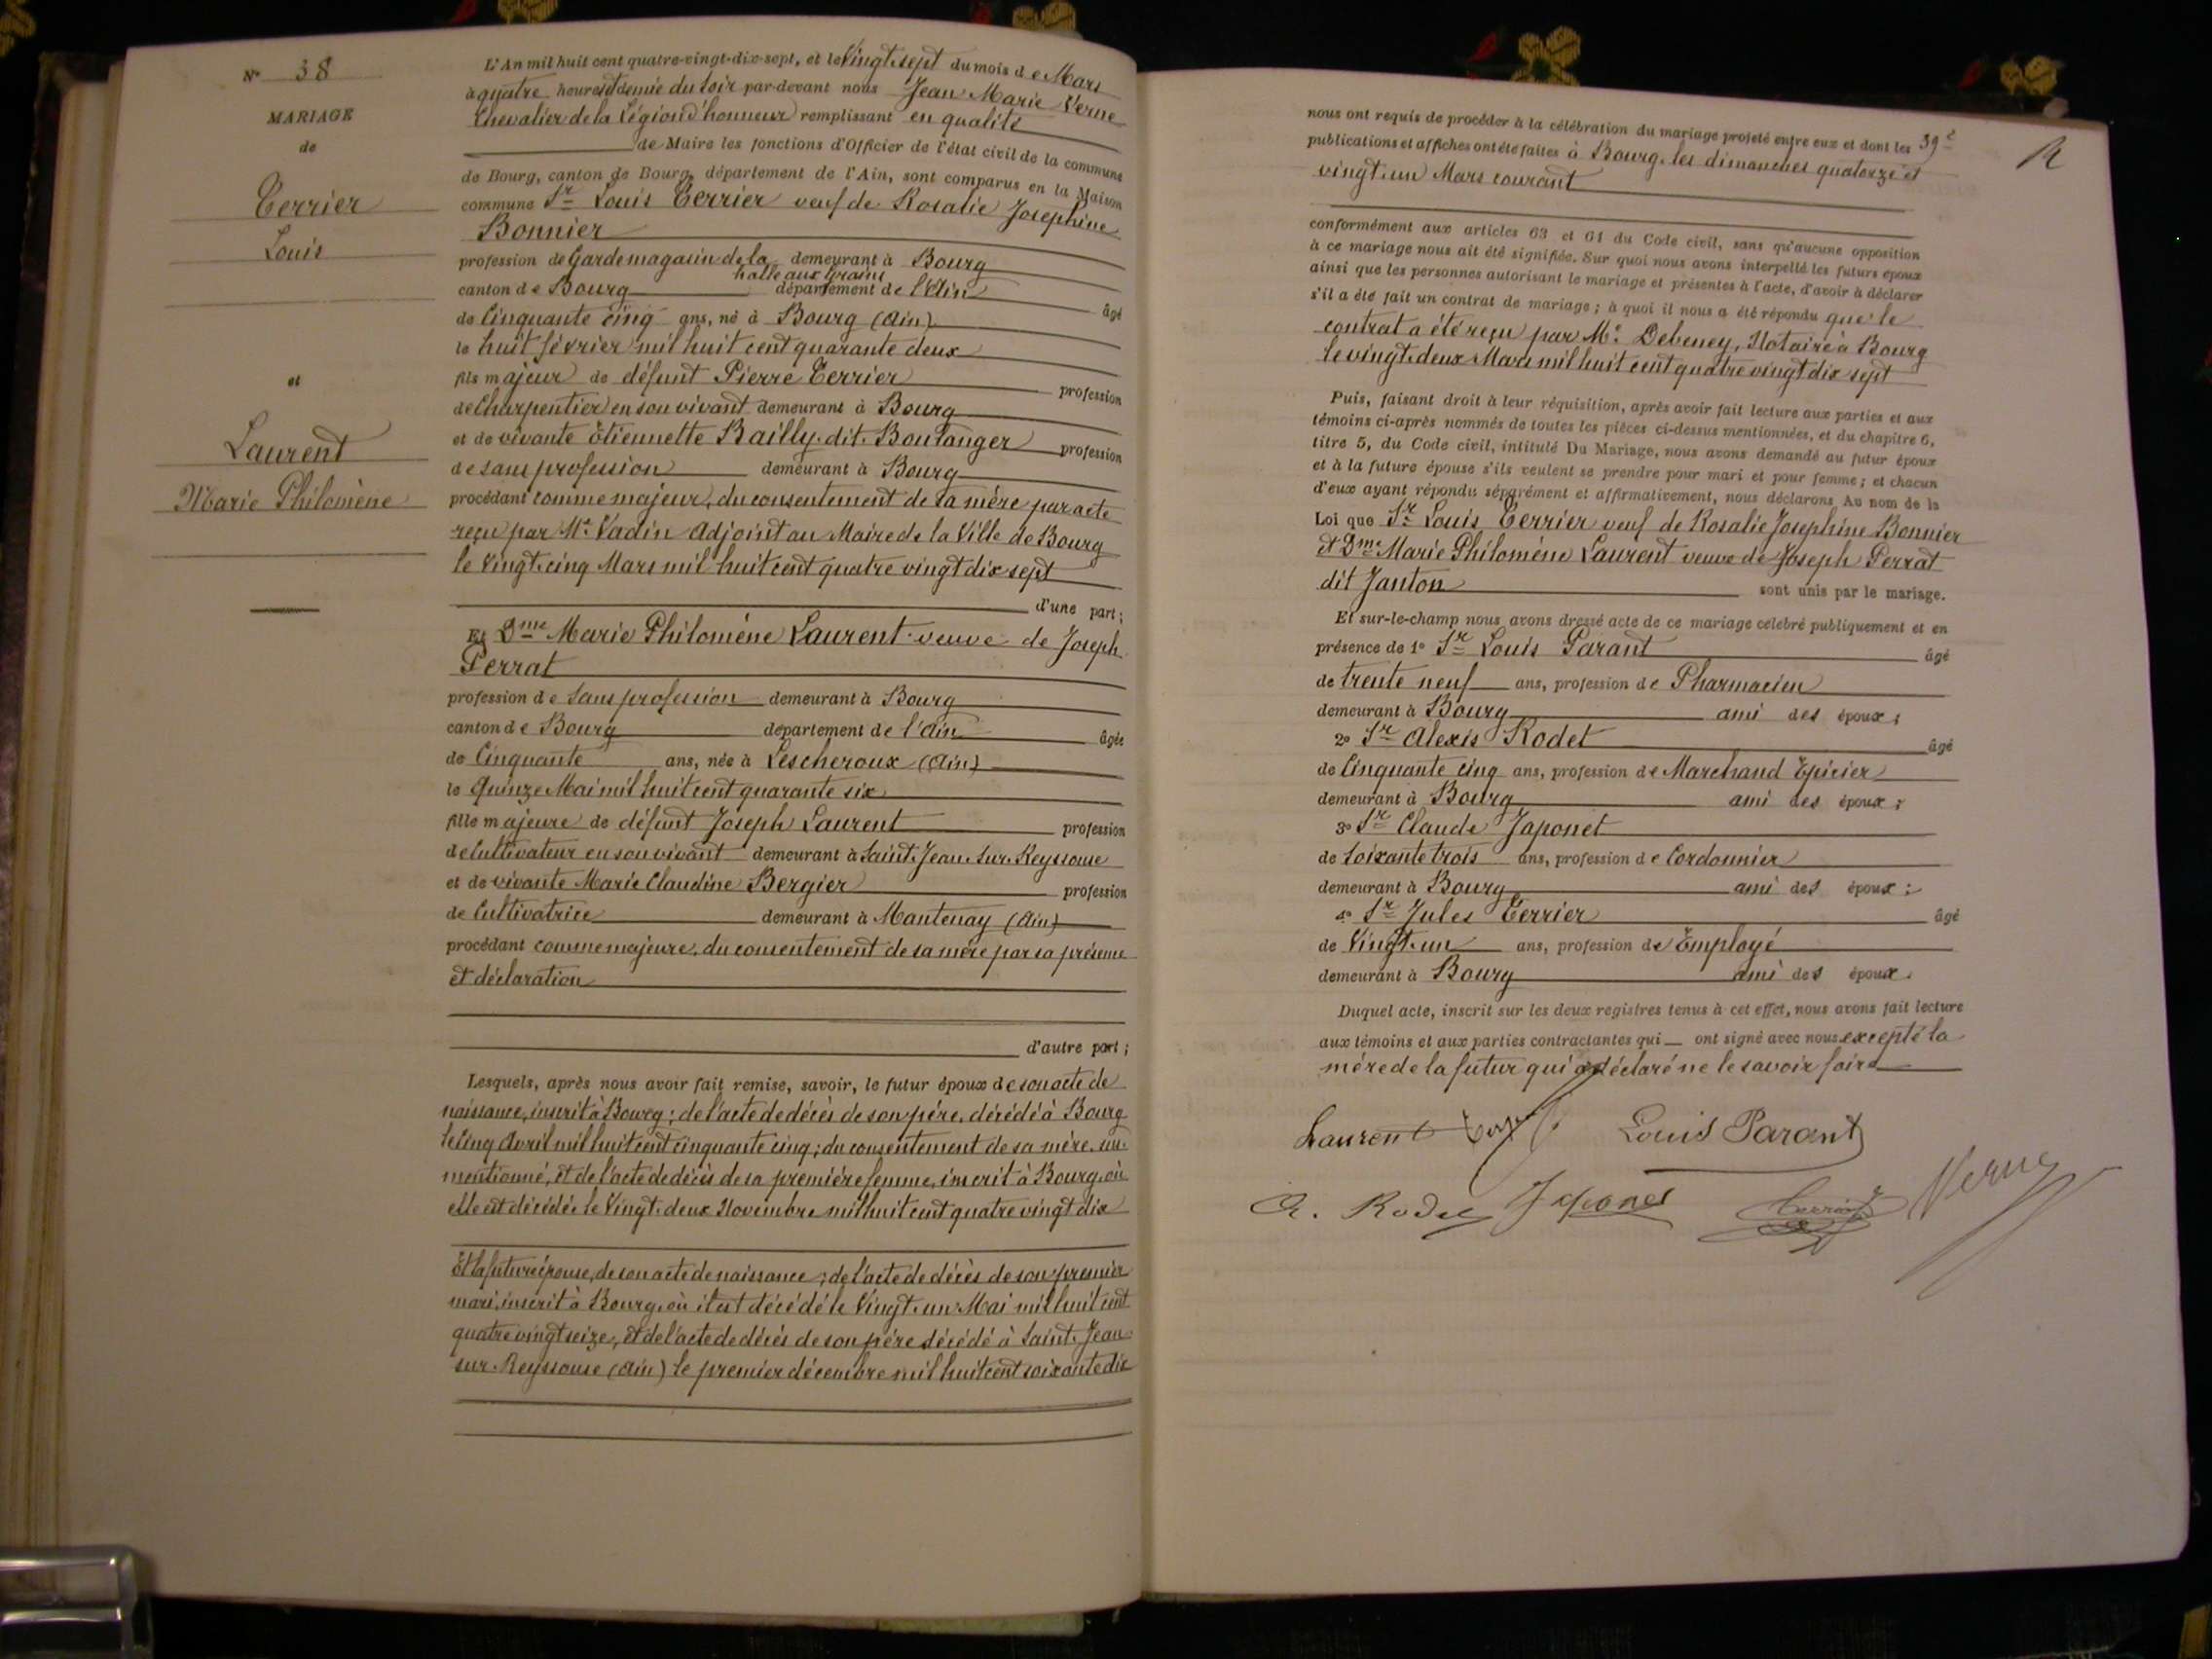 N° 38
MARIAGE
de
Terrier
Louis
et
Laurent
Marie Philomène
L'An mil huit cent quatre-vingt-dix-sept, et le Vingt-sept du mois de Mars
à quatre heures et demie du soir par-devant nous Jean Marie Verne
Chevalier de la Légion d'honneur remplissant en qualité
de Maire les fonctions d'Officier de l'état civil de la commune
de Bourg, canton de Bourg, département de l'Ain, sont comparus en la Maison
commune Sr Louis Terrier veuf de Rosalie Josephine
Bonnier
profession de Garde magasin de la halle aux Grains demeurant à Bourg
canton de Bourg département de l'Ain âgé
de Cinquante cinq ans, né à Bourg (Ain)
le huit février mil huit cent quarante deux
fils majeur de défunt Pierre Terrier profession
de Charpentier en son vivant demeurant à Bourg
et de vivante Etiennette Bailly-dit-Boulanger profession
de sans profession demeurant à Bourg
procédant comme majeur, du consentement de sa mère par acte
reçu par Mr Vadin Adjoint au Maire de la Ville de Bourg
le Vingt-cinq Mars mil huit cent quatre vingt dix sept
d'une part;
Et Dme Marie Philomène Laurent veuve de Joseph
Perrat
profession de Sans profession demeurant à Bourg
canton de Bourg département de l'Ain âgée
de Cinquante ans, née à Lescheroux (Ain)
le Quinze Mai mil huit cent quarante six
fille majeure de défunt Joseph Laurent profession
de Cultivateur en son vivant demeurant à Saint-Jean-sur-Reyssouse
et de vivante Marie Claudine Bergier profession
de Cultivatrice demeurant à Mantenay (Ain)
procédant comme majeure, du consentement de sa mère par sa présence
et déclaration
d'autre part;
Lesquels, après nous avoir fait remise, savoir, le futur époux de son acte de
naissance, inscrit à Bourg; de l'acte de décès de son père, décédé à Bourg
le Cinq Avril mil huit cent cinquante cinq; du consentement de sa mère, sus-
mentionné, et de l'acte de décès de sa première femme, inscrit à Bourg, où
elle est décédée le Vingt-deux Novembre mil huit cent quatre vingt dix
Et la future épouse, de son acte de naissance; de l'acte de décès de son premier
mari, inscrit à Bourg, où il est décédé le Vingt-un Mai mil huit cent
quatre vingt seize, et de l'acte de décès de son père décédé à Saint-Jean-
sur-Reyssouse (Ain) le premier décembre mil huit cent soixante dix
39e
R
nous ont requis de procéder à la célébration du mariage projeté entre eux et dont les
publications et affiches ont été faites à Bourg, les dimanches quatorze et
vingt-un Mars courant
conformément aux articles 63 et 64 du Code civil, sans qu'aucune opposition
à ce mariage nous ait été signifiée. Sur quoi nous avons interpellé les futurs époux
ainsi que les personnes autorisant le mariage et présentes à l'acte, d'avoir à déclarer
s'il a été fait un contrat de mariage; à quoi il nous a été répondu que le
contrat a été reçu par Me Debeney, Notaire à Bourg
le vingt-deux Mars mil huit cent quatre vingt dix sept
Puis, faisant droit à leur réquisition, après avoir fait lecture aux parties et aux
témoins ci-après nommés de toutes les pièces ci-dessus mentionnées, et du chapitre 6,
titre 5, du Code civil, intitulé Du Mariage, nous avons demandé au futur époux
et à la future épouse s'ils veulent se prendre pour mari et pour femme; et chacun
d'eux ayant répondu séparément et affirmativement, nous déclarons Au nom de la
Loi que Sr Louis Terrier veuf de Rosalie Josephine Bonnier
et Dme Marie Philomène Laurent veuve de Joseph Perrat
dit Janton sont unis par le mariage.
Et sur-le-champ nous avons dressé acte de ce mariage célébré publiquement et en
présence de 1° Sr Louis Parant âgé
de trente neuf ans, profession de Pharmacien
demeurant à Bourg ami des époux;
2° Sr Alexis Rodet âgé
de Cinquante cinq ans, profession de Marchand Epicier
demeurant à Bourg ami des époux;
3° Sr Claude Japonet
de Soixante trois ans, profession de Cordonnier
demeurant à Bourg ami des époux;
4° Sr Jules Terrier âgé
de Vingt-un ans, profession de Employé
demeurant à Bourg ami des époux.
Duquel acte, inscrit sur les deux registres tenus à cet effet, nous avons fait lecture
aux témoins et aux parties contractantes qui ont signé avec nous excepté la
mère de la futur qui a déclaré ne le savoir faire
Laurent Louis Parant
A. Rodet Japonet Terrier Verne